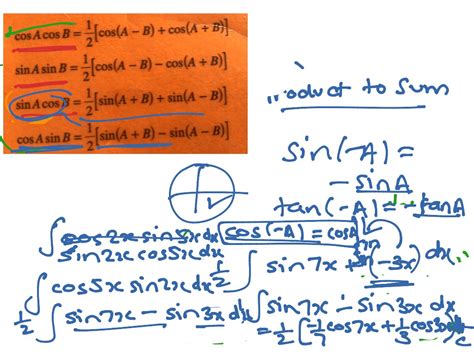 cos A cos B = 1/2[cos(A − B) + cos(A + B)]
sin A sin B = 1/2[cos(A − B) − cos(A + B)]
sin A cos B = 1/2[sin(A + B) + sin(A − B)]
cos A sin B = 1/2[sin(A + B) − sin(A − B)]
to sum
sin(-A) =
- sinA
tan(-A) = -tanA
cos(-A) = cosA
∫ cos2x sin5x dx
∫ sin2x cos5x dx
1/2 ∫ sin7x + sin(-3x) dx
∫ cos5x sin2x dx
1/2 ∫ sin7x - sin3x dx
1/2 ∫ sin7x - sin3x dx
= 1/2 [-1/7 cos7x + 1/3 cos3x] + C